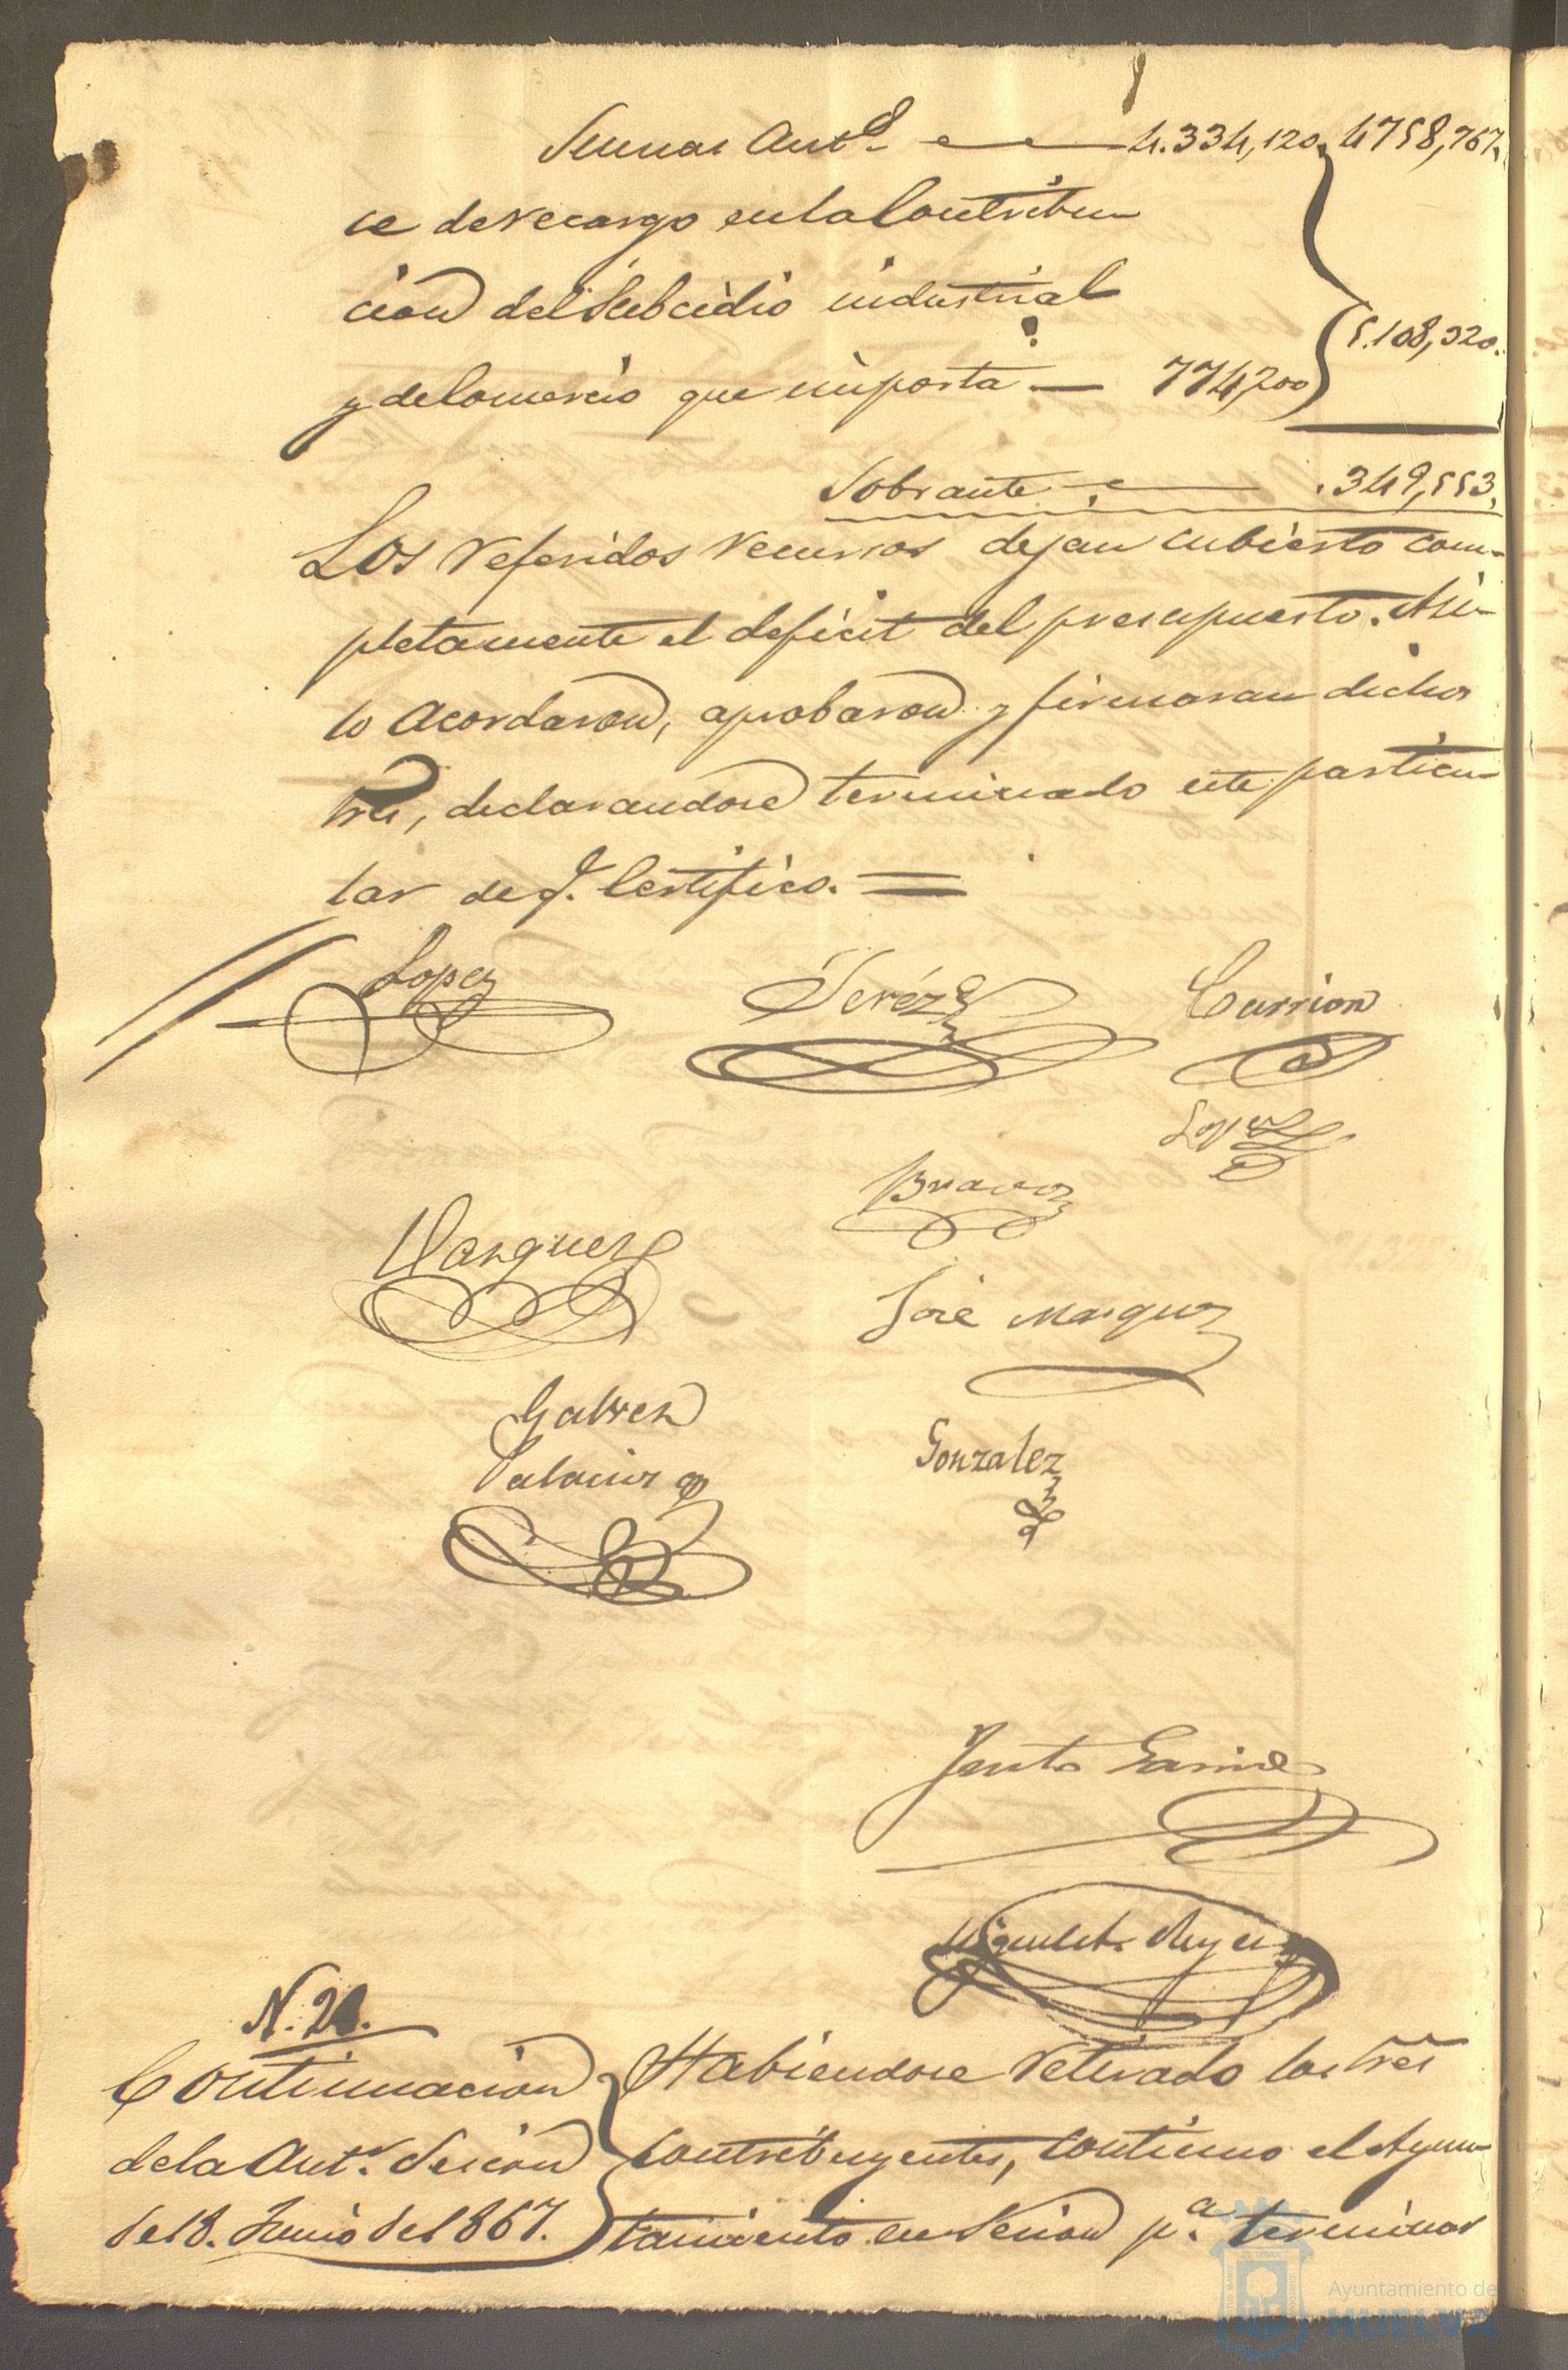 Sumas Antes 4.334,120. 4758,767.
ce de recargo en la Contribu
cion del Subcidio industrial
y de Comercio que importa 774,200 5.108,320.
Sobrante .349,553.
Los referidos recursos dejan cubierto com-
pletamente el deficit del presupuesto. Asi-
lo acordaron, aprobaron y firmaran dichos
Sres, declarandose terminado este particu-
lar de q. Certifico. =
Lopez Jeréz Carrion
Lopez
Bravo
Vazquez
José Marquez
Galvez
Palacios
Gonzalez
Justo Garrido
Miguel A. Reyes
N. 20.
Continuacion
de la Antr. Sesion
de 18. Junio de 1867.
Habiendose retirado los Sres
Contribuyentes, continuo el Ayun-
tamiento en Sesion pa. terminar
Ayuntamiento de
HUELVA